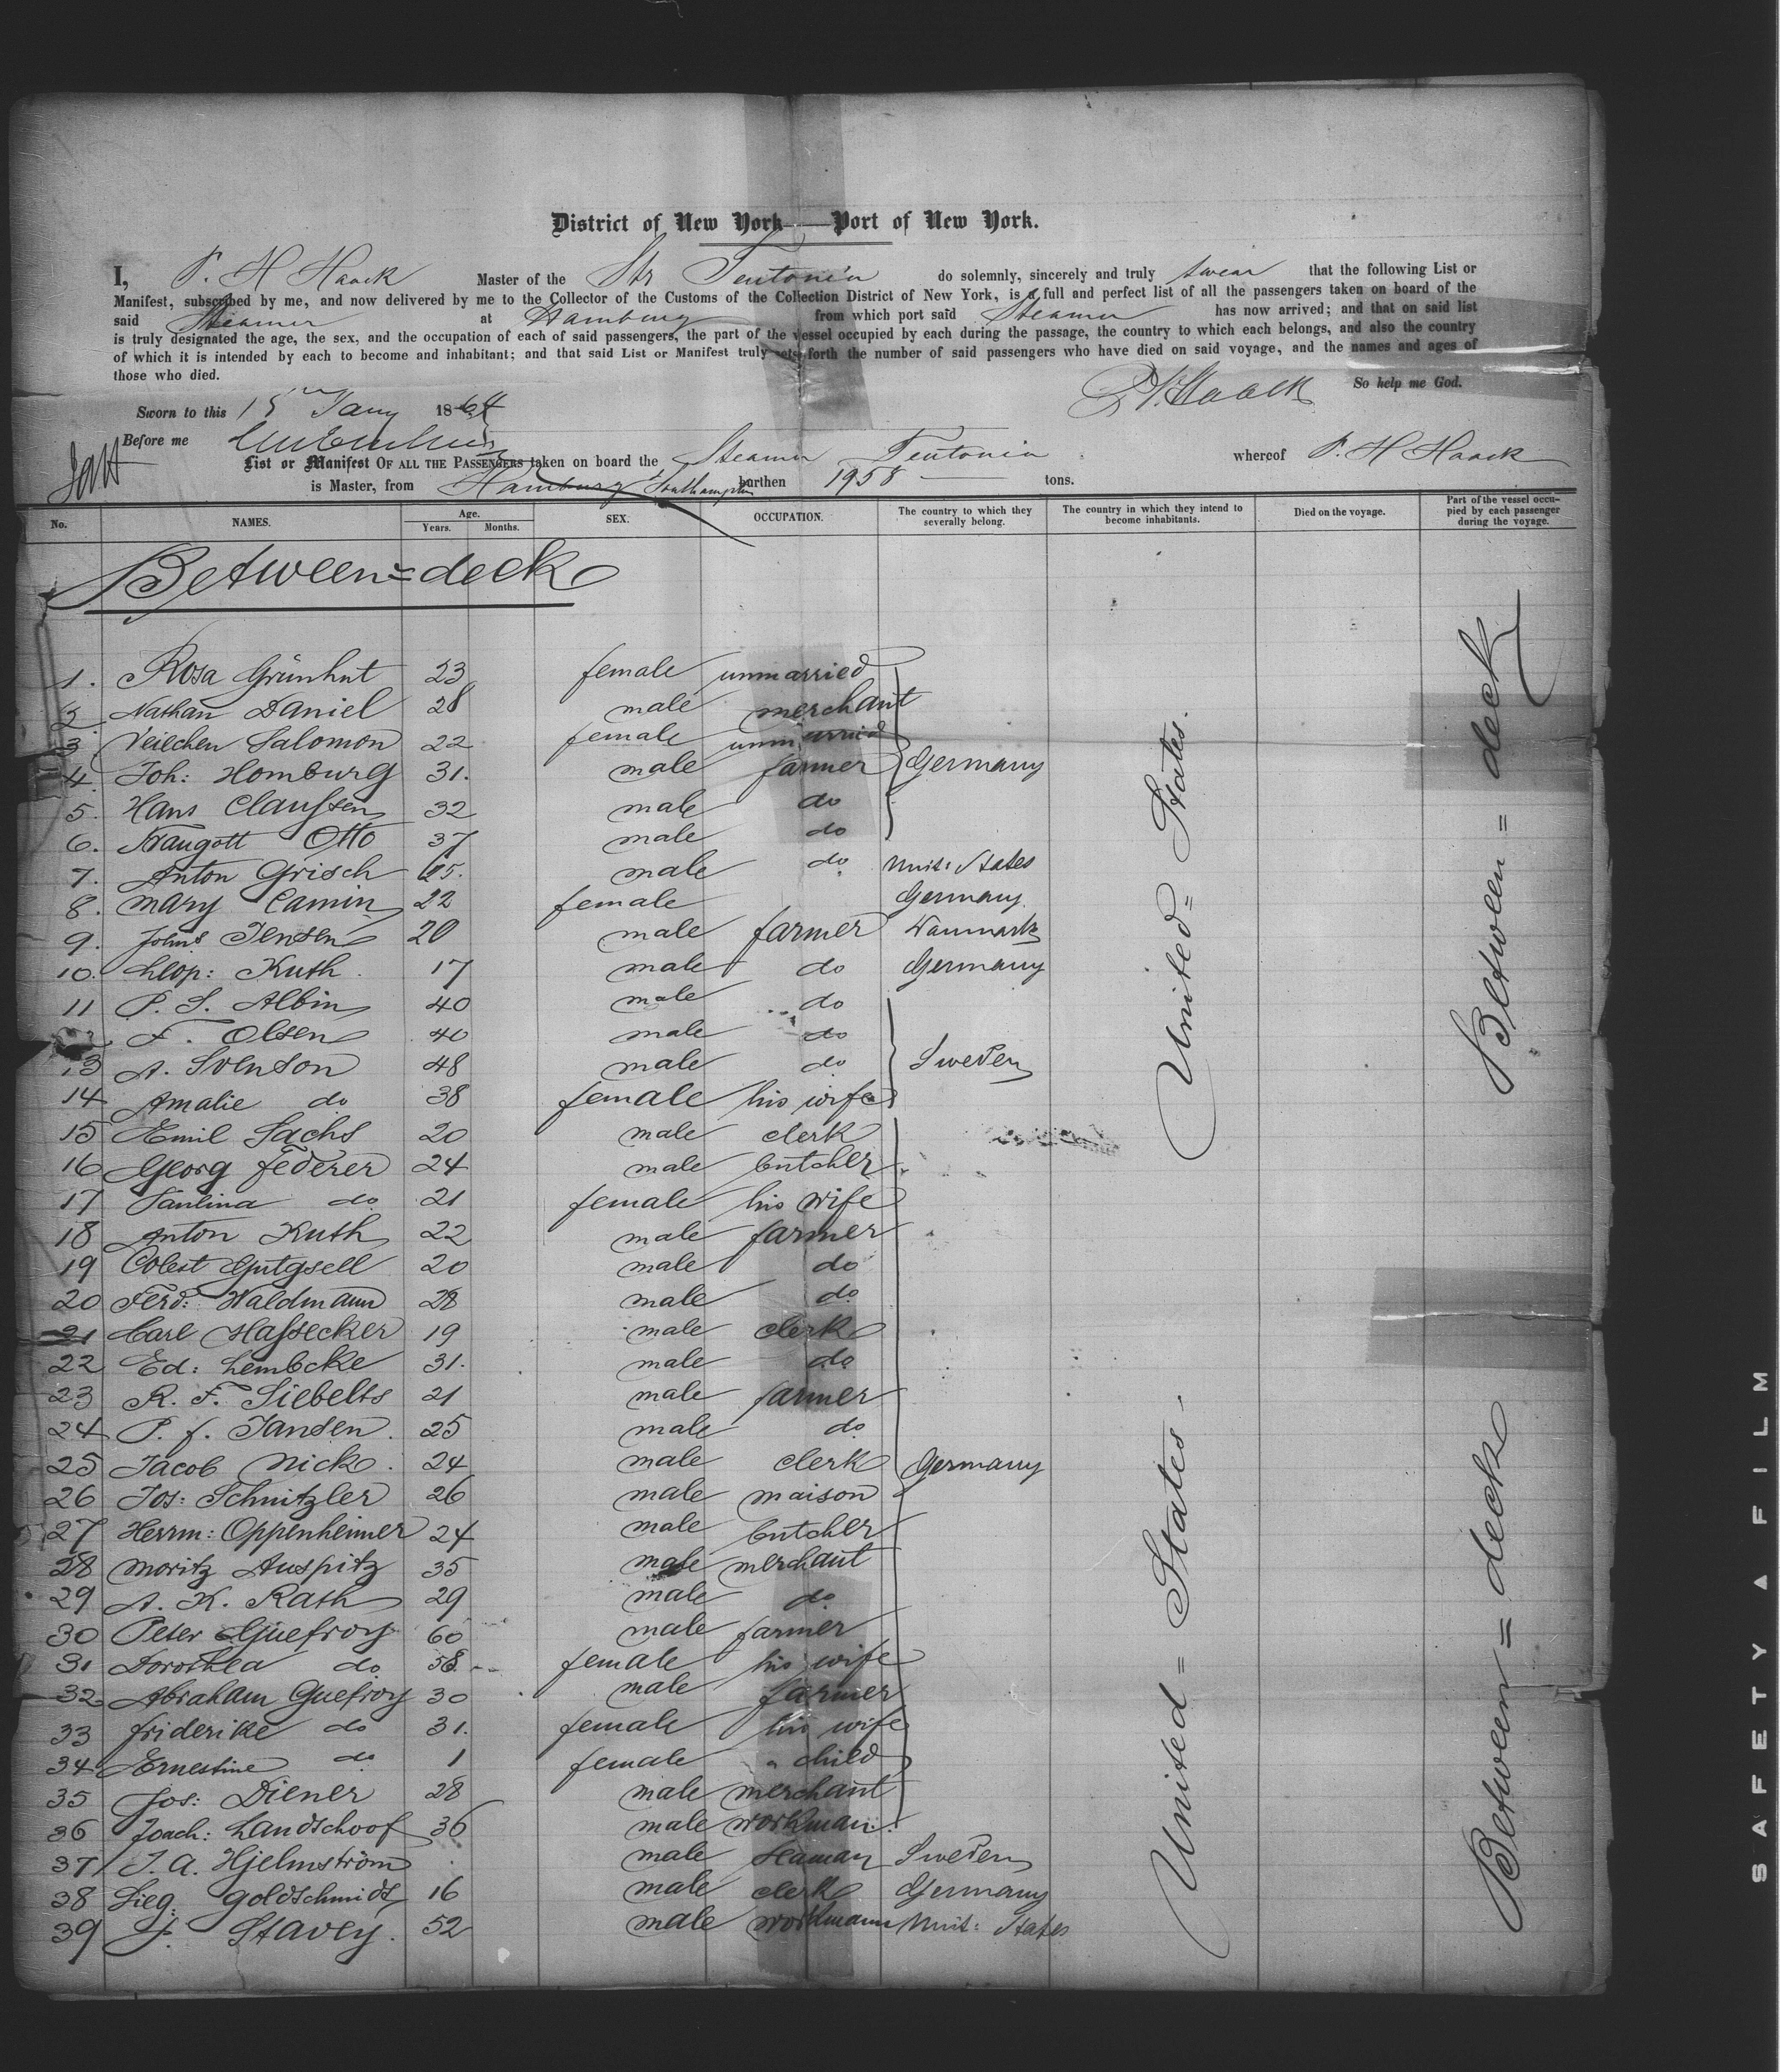 District of New York—Port of New York.
I, P. H Haack Master of the Str Teutonia do solemnly, sincerely and truly swear that the following List or
Manifest, subscribed by me, and now delivered by me to the Collector of the Customs of the Collection District of New York, is a full and perfect list of all the passengers taken on board of the
said Steamer at Hamburg from which port said Steamer has now arrived; and that on said list
is truly designated the age, the sex, and the occupation of each of said passengers, the part of the vessel occupied by each during the passage, the country to which each belongs, and also the country
of which it is intended by each to become and inhabitant; and that said List or Manifest truly sets forth the number of said passengers who have died on said voyage, and the names and ages of
those who died.
So help me God.
P. H. Haack
Sworn to this 15 Jany 1864
Before me
List or Manifest OF ALL THE PASSENGERS taken on board the Steamer Teutonia whereof P. H Haack
is Master, from Hamburg Southampton burthen 1958 tons.
No. NAMES. Age. Years. Months. SEX. OCCUPATION. The country to which they severally belong. The country in which they intend to become inhabitants. Died on the voyage. Part of the vessel occupied by each passenger during the voyage.
Between=deck
1. Rosa Grünhut 23 female unmarried
2 Nathan Daniel 28 male merchant
3 Veilchen Salomon 22 female unmarried
4. Joh: Homburg 31. male farmer Germany
5. Hans Claussen 32 male do
6. Traugott Otto 37 male do
7. Anton Grisch 65. male do Unit: States
8. Mary Camin 22 female Germany.
9. Johns Jensen 20 male farmer Danmark
10. Leop: Kuth 17 male do Germany
11 P. S. Albin 40 male do
F. Olsen 40 male do
13 A. Svenson 48 male do Sweden
14 Amalie do 38 female his wife
15 Emil Sachs 20 male clerk
16 Georg Federer 24 male butcher
17 Paulina do 21 female his wife
18 Anton Kuth 22 male farmer
19 Cölest Gutgsell 20 male do
20 Ferd: Waldmann 28 male do
21 Carl Hassecker 19 male clerk
22 Ed: Lembcke 31. male do
23 R. F. Siebelts 21 male farmer
24 P. f. Jansen 25 male do
25 Jacob Nick 24 male clerk Germany
26 Jos: Schnitzler 26 male maison
27 Herrm: Oppenheimer 24 male butcher
28 Moritz Auspitz 35 male merchant
29 A. K. Rath 29 male do
30 Peter Guefroy 60 male farmer
31 Dorothea do 58 female his wife
32 Abraham Guefroy 30 male farmer
33 friderike do 31. female his wife
34 Ernestine do 1 female " child
35 Jos: Diener 28 male merchant
36 Joach: Landschoof 36 male workman
37 J. A. Hjelmström male Seaman Sweden
38 Sieg. Goldschmidt 16 male clerk Germany
39 J. Stavey 52 male workmann Unit: States
United = States.
United = States.
Between = deck
Between = deck
SAFETY ▲ FILM